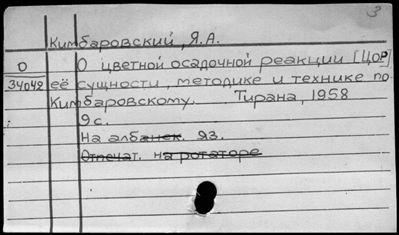 3
Кимбаровский, Я.А.
О О цветной осадочной реакции [ЦОР]
34042 её сущности, методике и технике по
Кимбаровскому. Тирана, 1958
9 с.
На албанск. яз.
Отпечат. на ротаторе